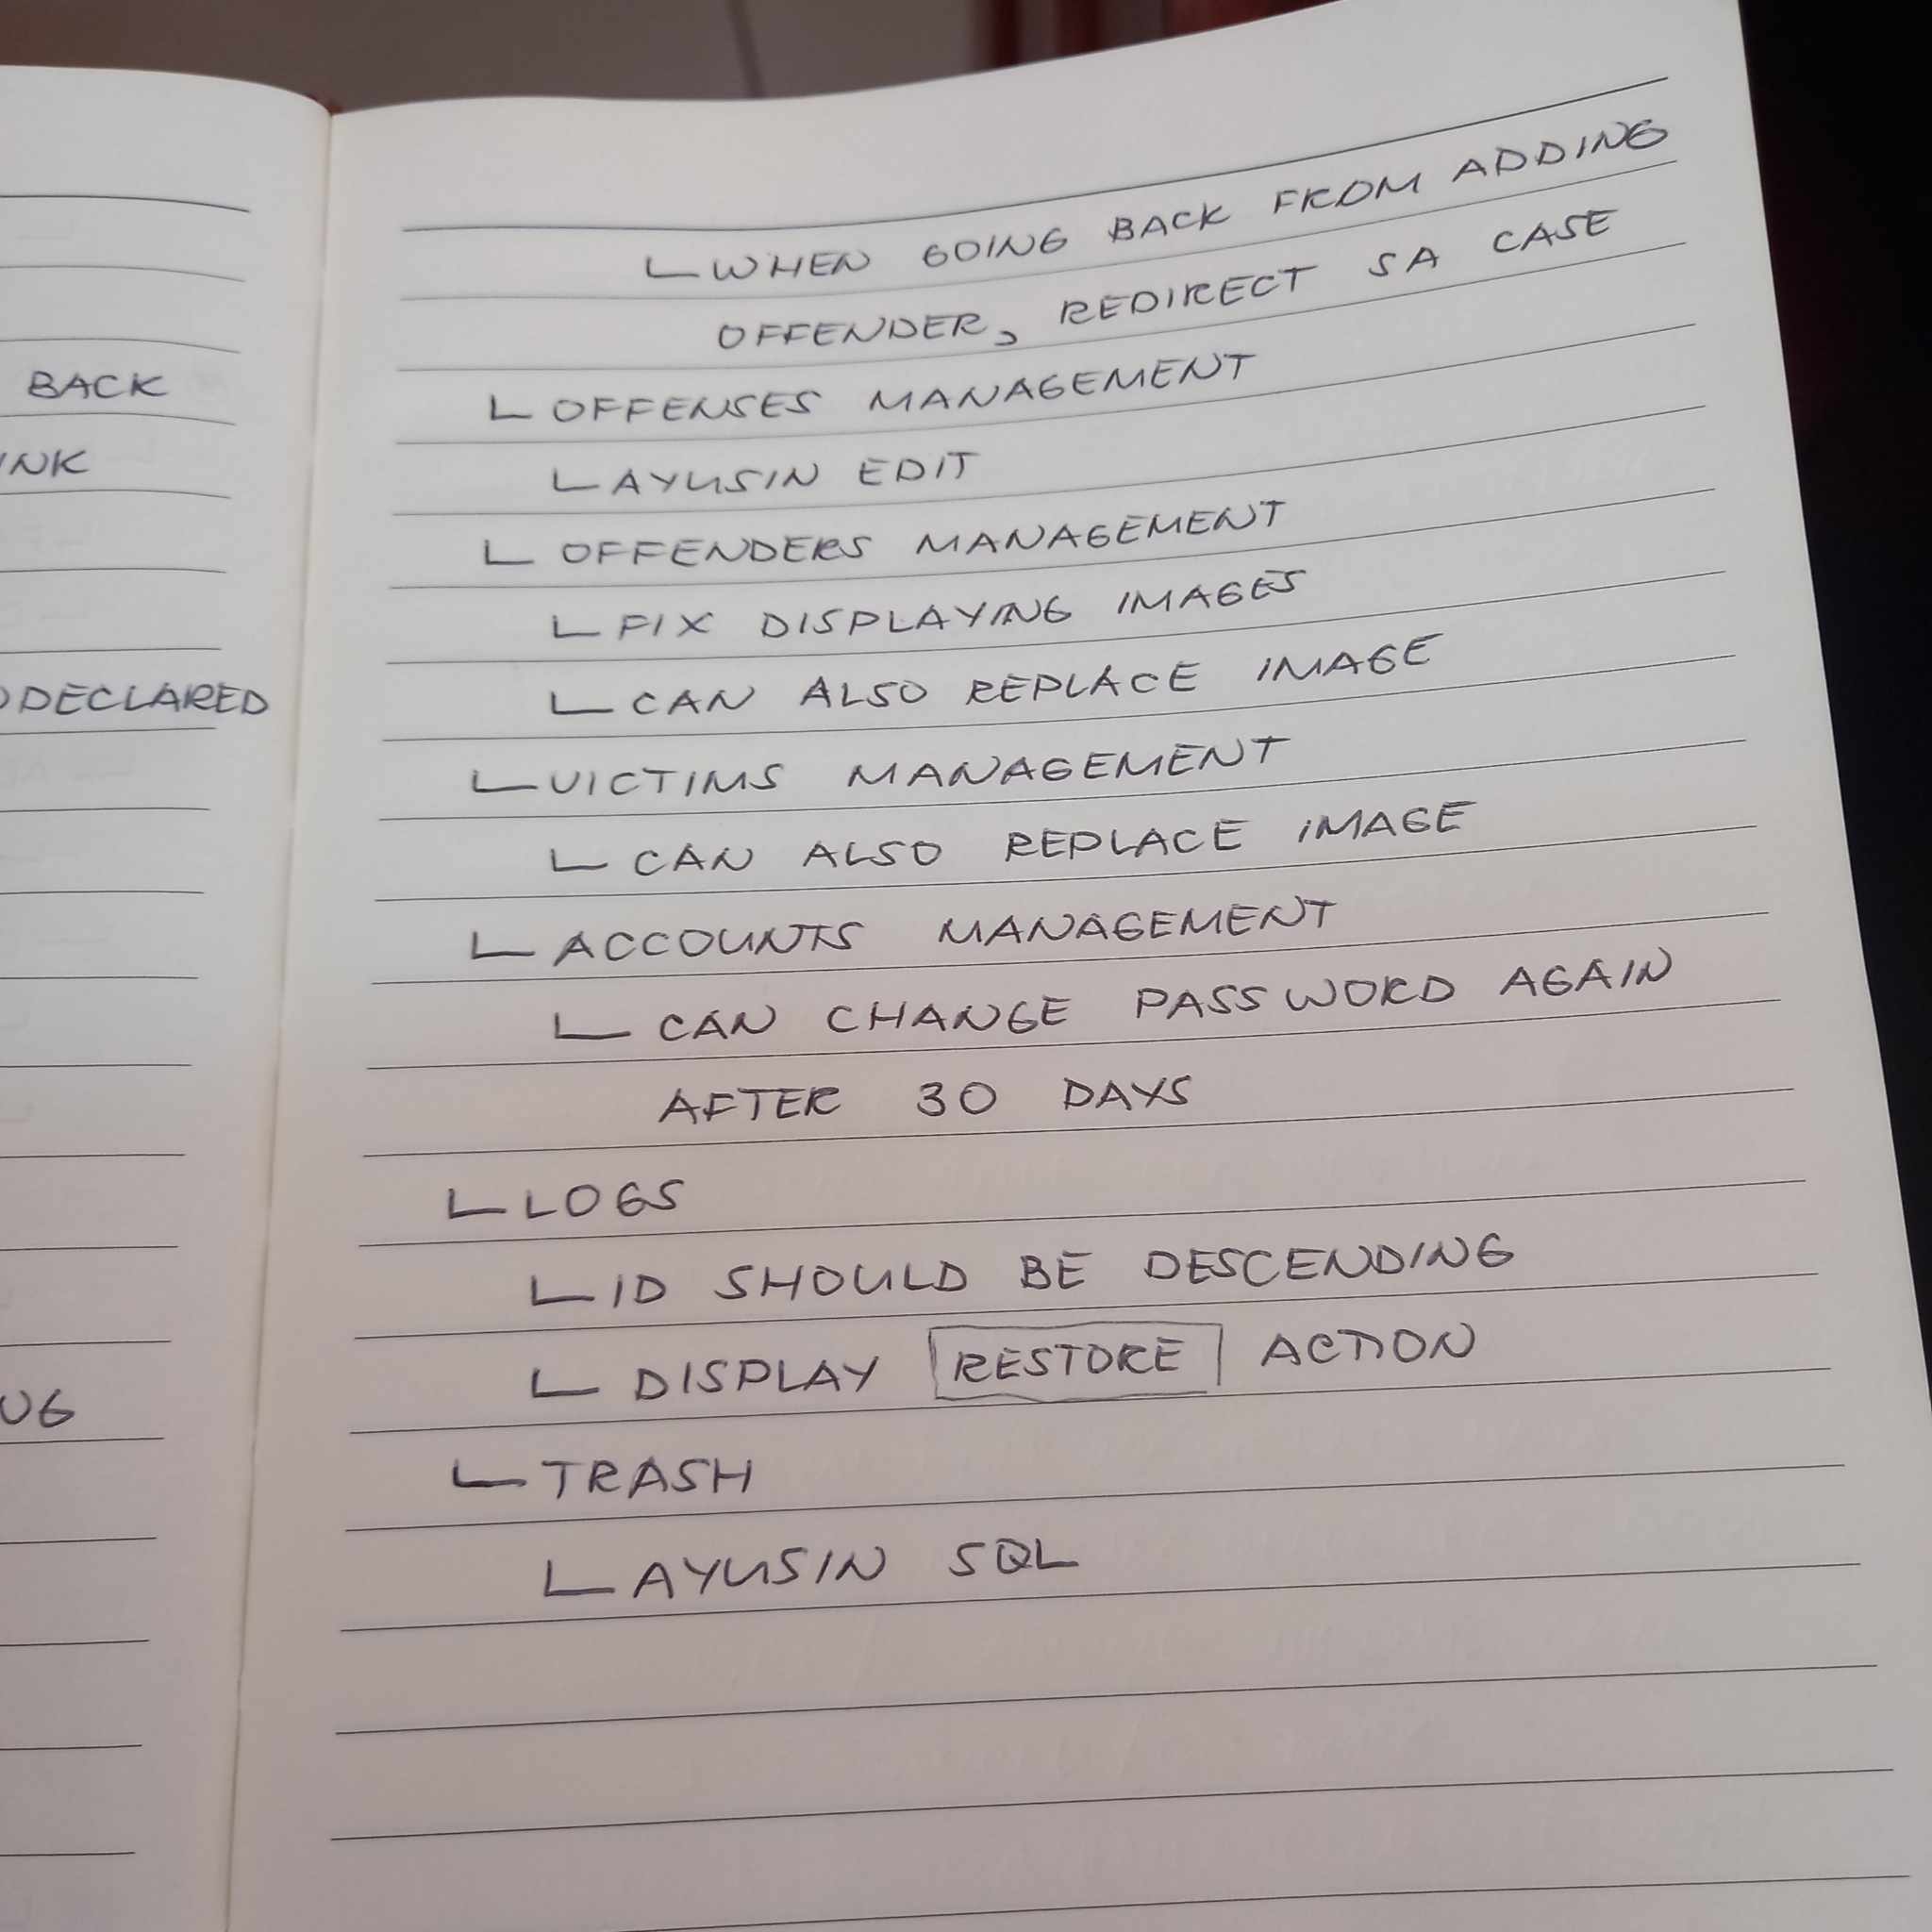 BACK
DECLARED
WHEN GOING BACK FROM ADDING
OFFENDER, REDIRECT SA CASE
OFFENSES MANAGEMENT
AYUSIN EDIT
OFFENDERS MANAGEMENT
FIX DISPLAYING IMAGES
CAN ALSO REPLACE IMAGE
VICTIMS MANAGEMENT
CAN ALSO REPLACE IMAGE
ACCOUNTS MANAGEMENT
CAN CHANGE PASSWORD AGAIN
AFTER 30 DAYS
LOGS
ID SHOULD BE DESCENDING
DISPLAY RESTORE ACTION
TRASH
AYUSIN SQL